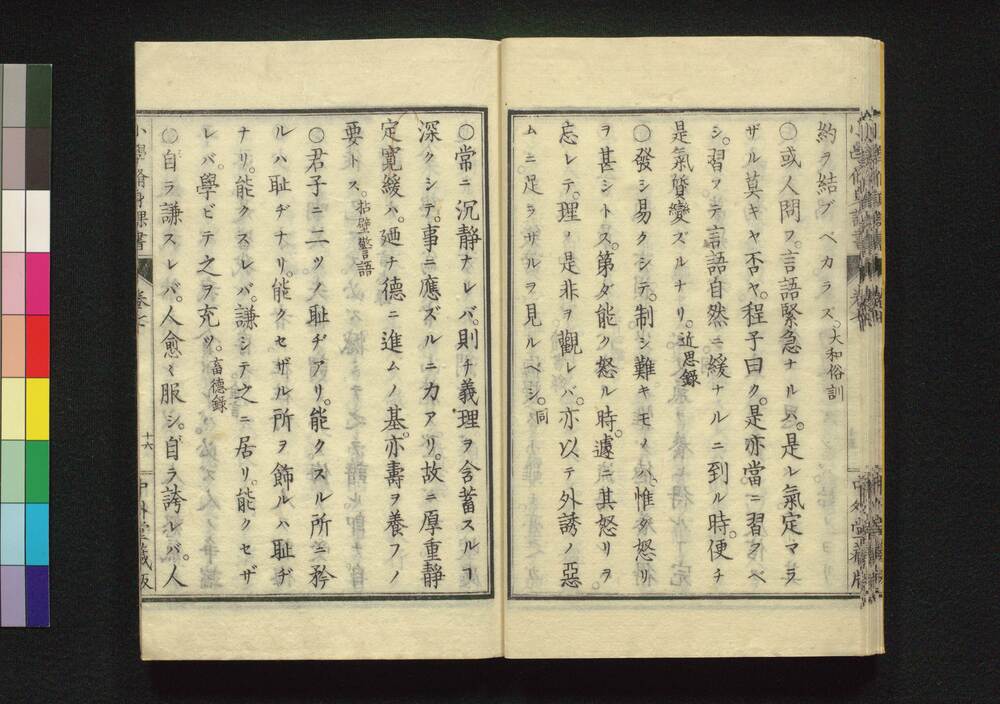 約ヲ結ブベカラズ。大和俗訓
○或人問フ。言語緊急ナルハ。是レ氣定マラ
ザル莫キヤ否ヤ。程子曰ク。是亦當ニ習フベ
シ。習フテ言語自然ニ緩ナルニ到ル時。便チ
是氣質變ズルナリ。近思錄
○發シ易クシテ。制シ難キモノハ。惟ダ怒リ
ヲ甚シトス。第ダ能ク怒ル時。遽ニ其怒リヲ
忘レテ。理ノ是非ヲ觀レバ。亦以テ外誘ノ惡
ムニ足ラザルヲ見ルベシ。同
○常ニ沉靜ナレバ。則チ義理ヲ含蓄スルコ
深クシテ。事ニ應ズルニ力アリ。故ニ厚重靜
定寬緩ハ。廼チ德ニ進ムノ基。亦壽ヲ養フノ
要トス。拈壁警語
○君子ニ二ツノ恥ヂアリ。能クスル所ニ矜
ルハ恥ヂナリ。能クセザル所ヲ飾ルハ恥ヂ
ナリ。能クスレバ。謙シテ之ニ居リ。能クセザ
レバ。學ビテ之ヲ充ツ。畜德錄
○自ラ謙スレバ。人愈〻服シ。自ラ誇レバ。人
小學脩身課書 卷七 十六 中外堂藏版